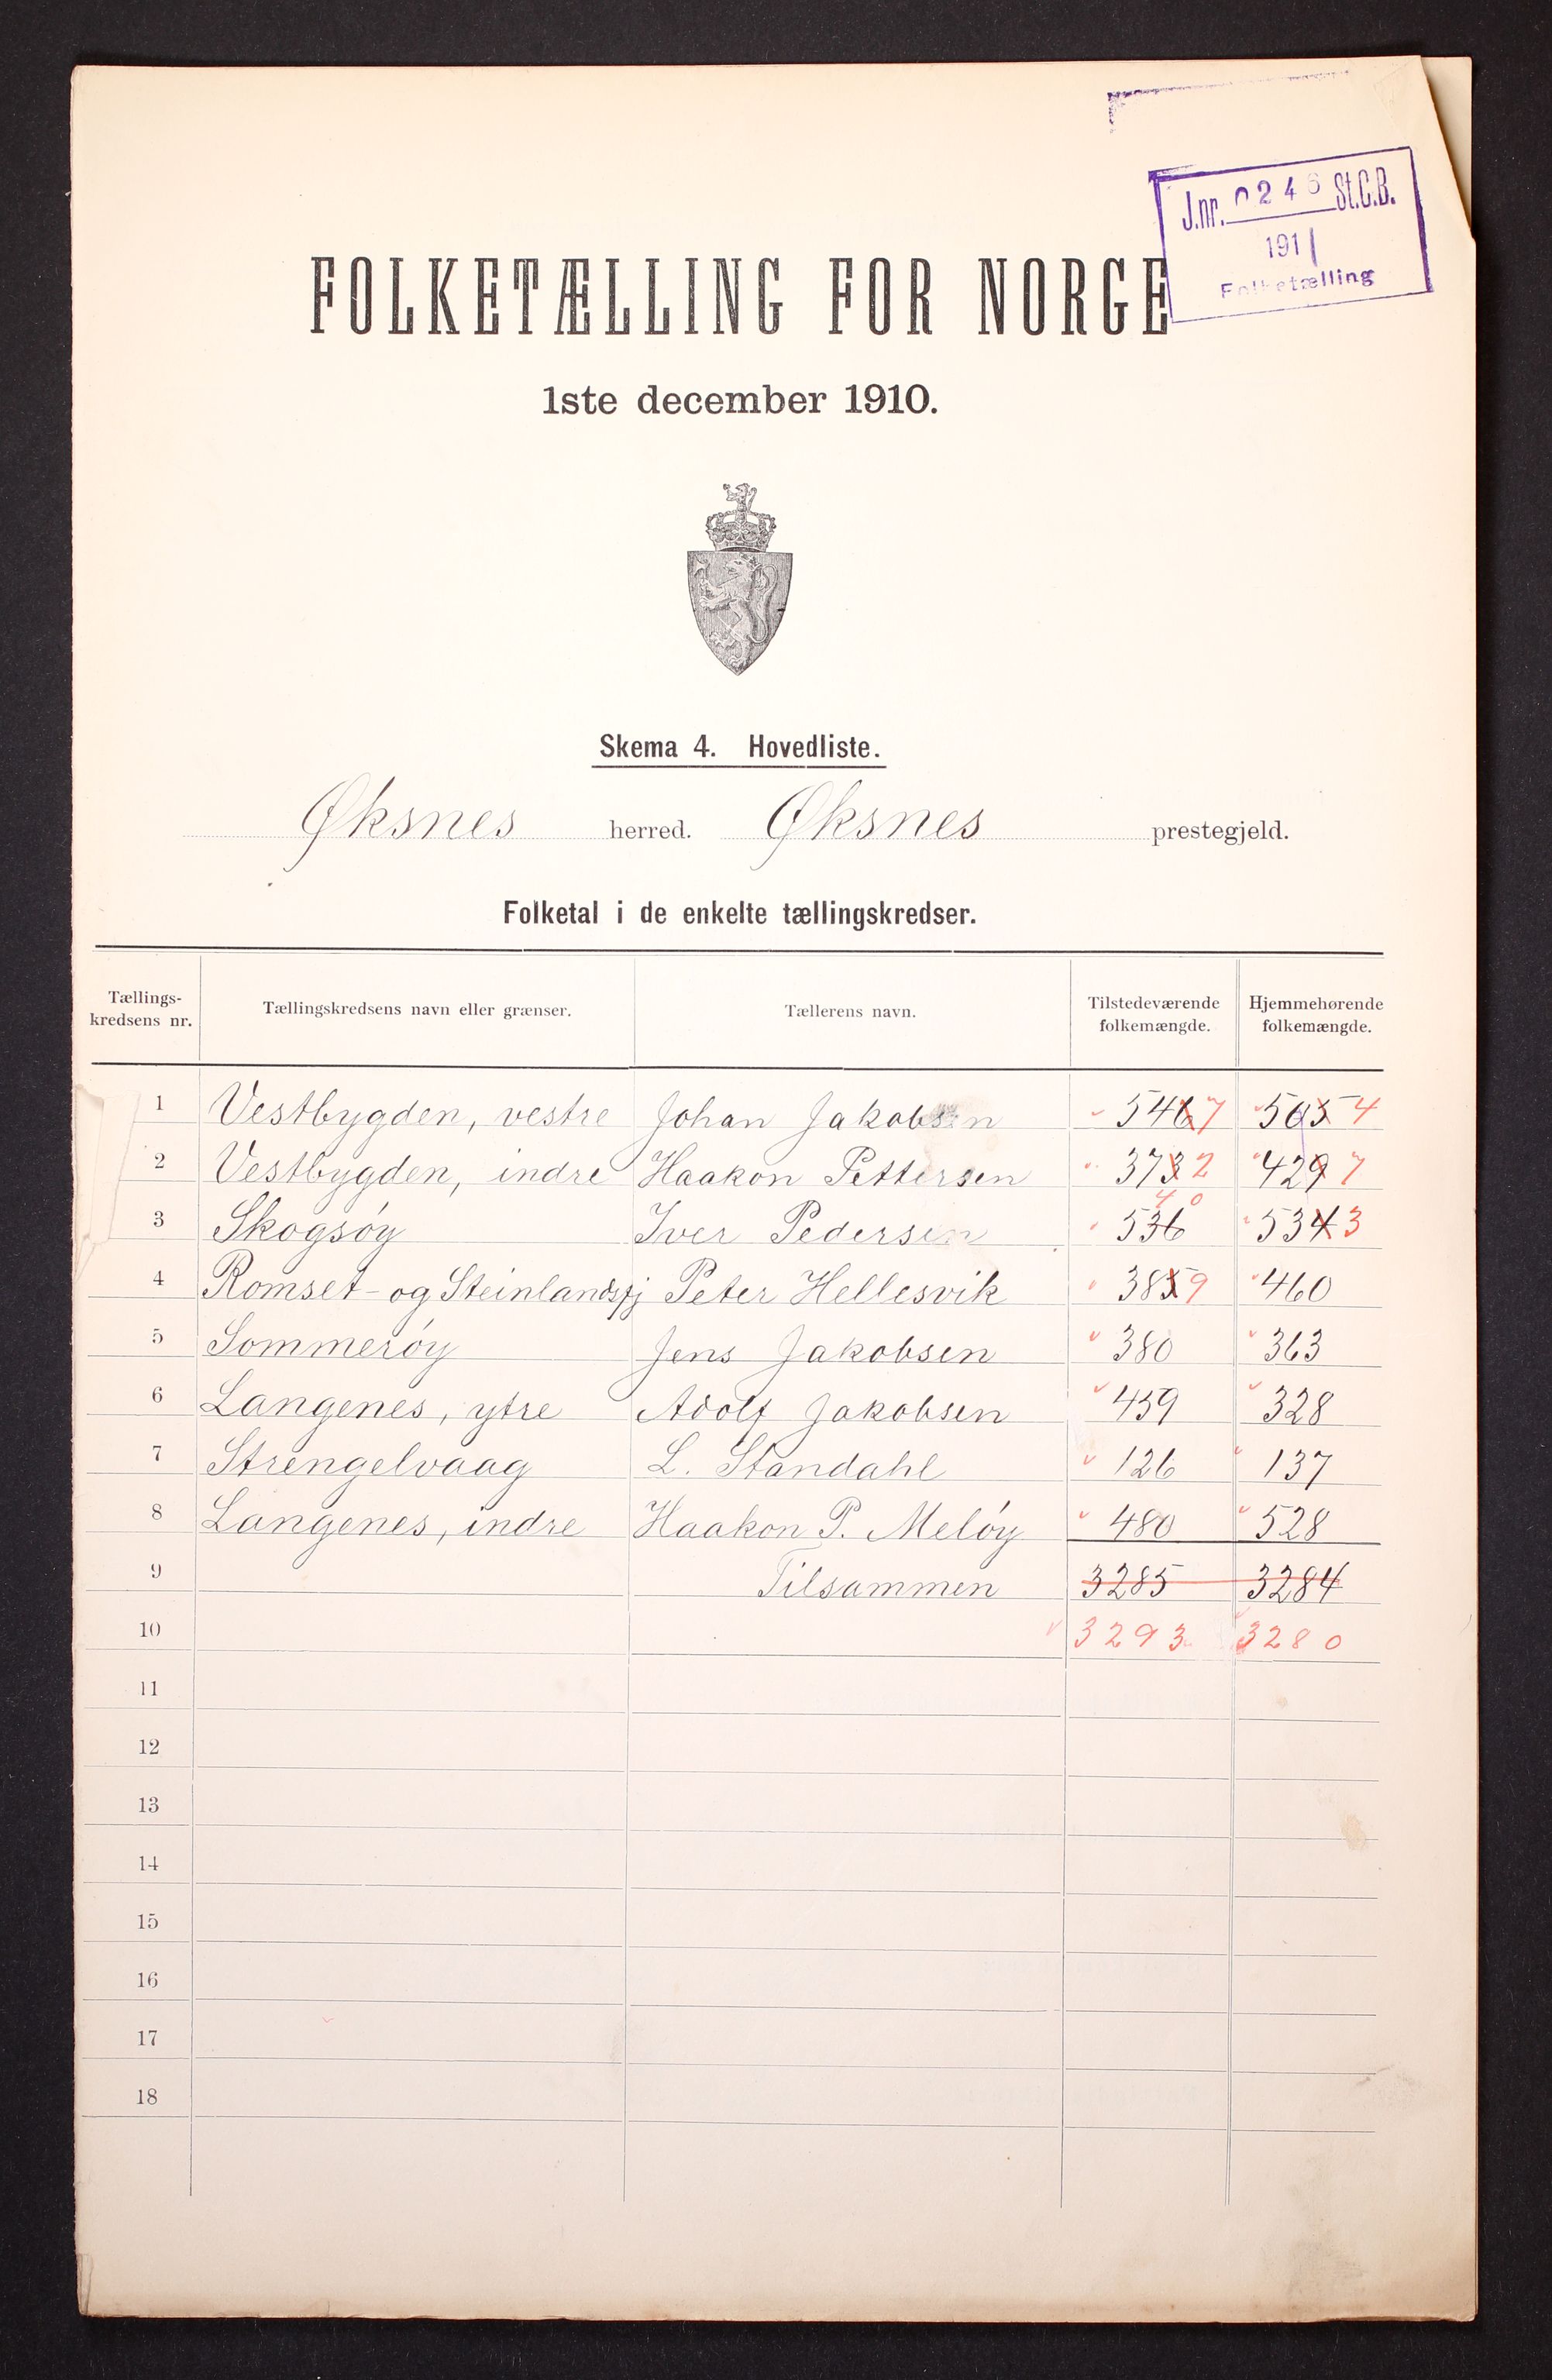 J.nr. 0246 St.C.B.
1911
Folketælling
FOLKETÆLLING FOR NORGE
1ste december 1910.
Skema 4. Hovedliste.
Øksnes herred. Øksnes prestegjeld.
Folketal i de enkelte tællingskredser.
Tællings-
kredsens nr.
Tællingskredsens navn eller grænser.
Tællerens navn.
Tilstedeværende
folkemængde.
Hjemmehørende
folkemængde.
1 Vestbygden, vestre Johan Jakobsen 546 7 505 4
2 Vestbygden, indre Haakon Pettersen 373 2 429 7
3 Skogsöy Iver Pedersen 536 40 534 3
4 Romset- og Steinlandsfj Peter Hellesvik 385 9 460
5 Sommeröy Jens Jakobsen 380 363
6 Langenes, ytre Adolf Jakobsen 459 328
7 Strengelvaag L. Standahl 126 137
8 Langenes, indre Haakon P. Melöy 480 528
9 Tilsammen 3285 3284
10 3293 3280
11
12
13
14
15
16
17
18